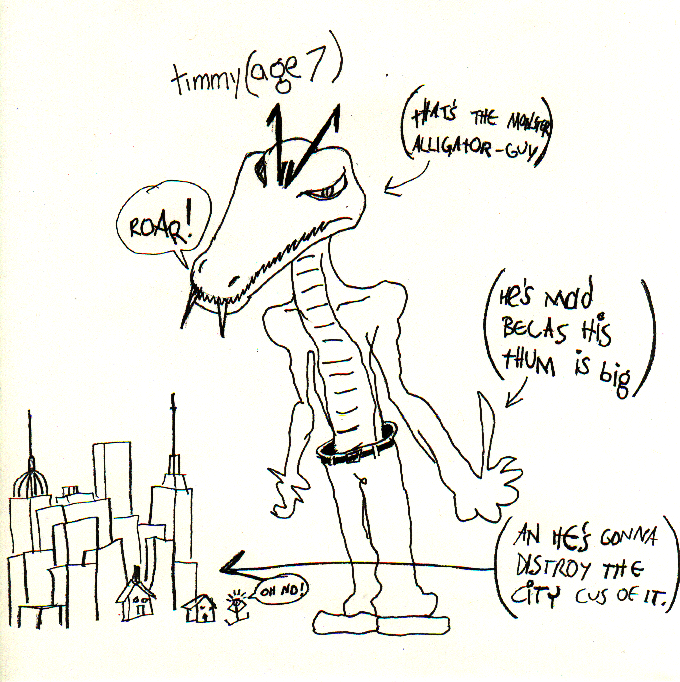 timmy (age 7)
(tHAt'S tHE MONStER
ALLIGAtOR-GUY)
ROAR!
(HE'S MAd
BECAS HiS
tHUM iS big)
(AN HE'S GONNA
DiStROY tHE
CitY CUS OF It.)
OH NO!